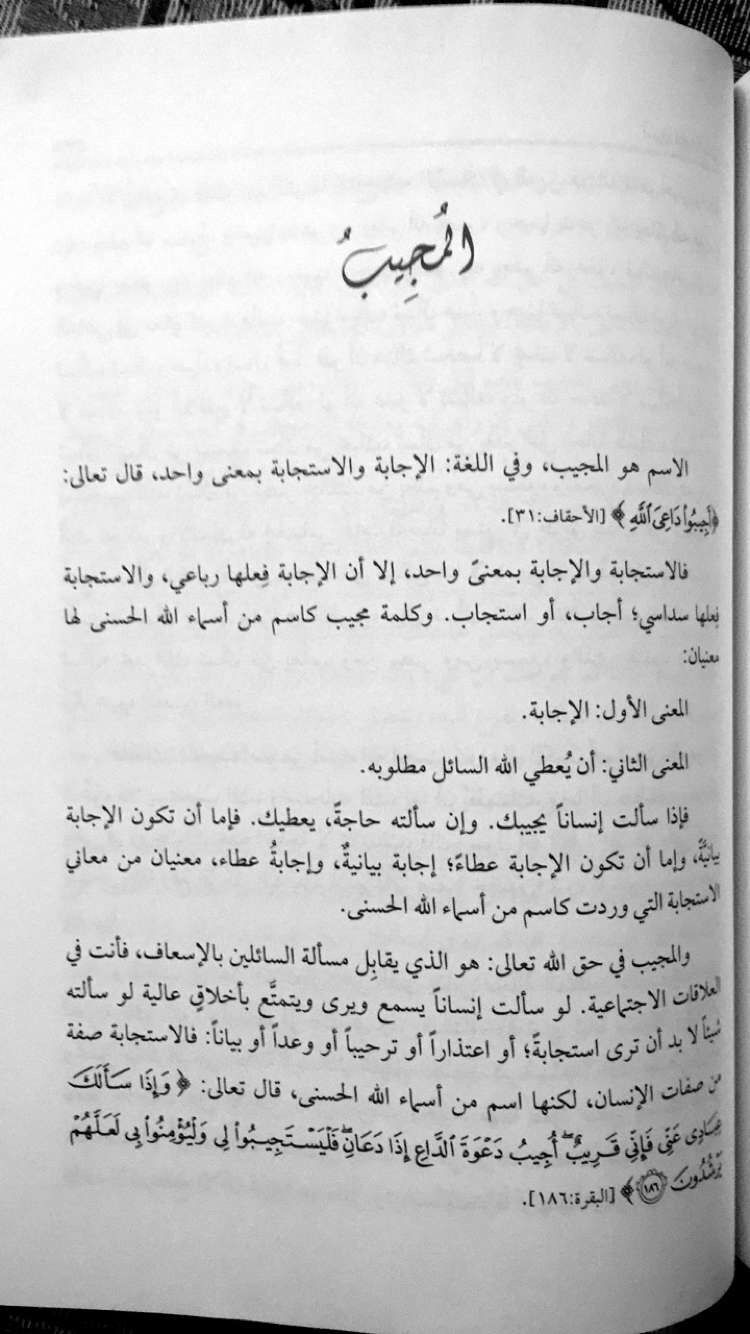 المُجِيبُ
الاسم هو المجيب، وفي اللغة: الإجابة والاستجابة بمعنى واحد، قال تعالى:
﴿أَجِيبُواْ دَاعِيَ ٱللَّهِ﴾ [الأحقاف:٣١].
فالاستجابة والإجابة بمعنىً واحد، إلا أن الإجابة فِعلها رباعي، والاستجابة
فِعلها سداسي؛ أجاب، أو استجاب. وكلمة مجيب كاسم من أسماء الله الحسنى لها
معنيان:
المعنى الأول: الإجابة.
المعنى الثاني: أن يُعطي الله السائل مطلوبه.
فإذا سألت إنساناً يجيبك. وإن سألته حاجةً، يعطيك. فإما أن تكون الإجابة
بيانيَّةً، وإما أن تكون الإجابة عطاءً؛ إجابة بيانيةٌ، وإجابةُ عطاء، معنيان من معاني
الاستجابة التي وردت كاسم من أسماء الله الحسنى.
والمجيب في حق الله تعالى: هو الذي يقابِل مسألة السائلين بالإسعاف، فأنت في
العلاقات الاجتماعية. لو سألت إنساناً يسمع ويرى ويتمتَّع بأخلاقٍ عالية لو سألته
شيئاً لا بد أن ترى استجابةً؛ أو اعتذاراً أو ترحيباً أو وعداً أو بياناً: فالاستجابة صفة
من صفات الإنسان، لكنها اسم من أسماء الله الحسنى، قال تعالى: ﴿وَإِذَا سَأَلَكَ
عِبَادِى عَنِّى فَإِنِّى قَرِيبٌ أُجِيبُ دَعْوَةَ ٱلدَّاعِ إِذَا دَعَانِ فَلْيَسْتَجِيبُواْ لِى وَلْيُؤْمِنُواْ بِى لَعَلَّهُمْ
يَرْشُدُونَ ١٨٦﴾ [البقرة:١٨٦].